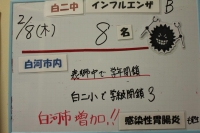 白二中 インフルエンザ B
2/8(木) 8名
白河市内
表郷中で学年閉鎖
白二小で学級閉鎖3
白河市増加!! 感染性胃腸炎も